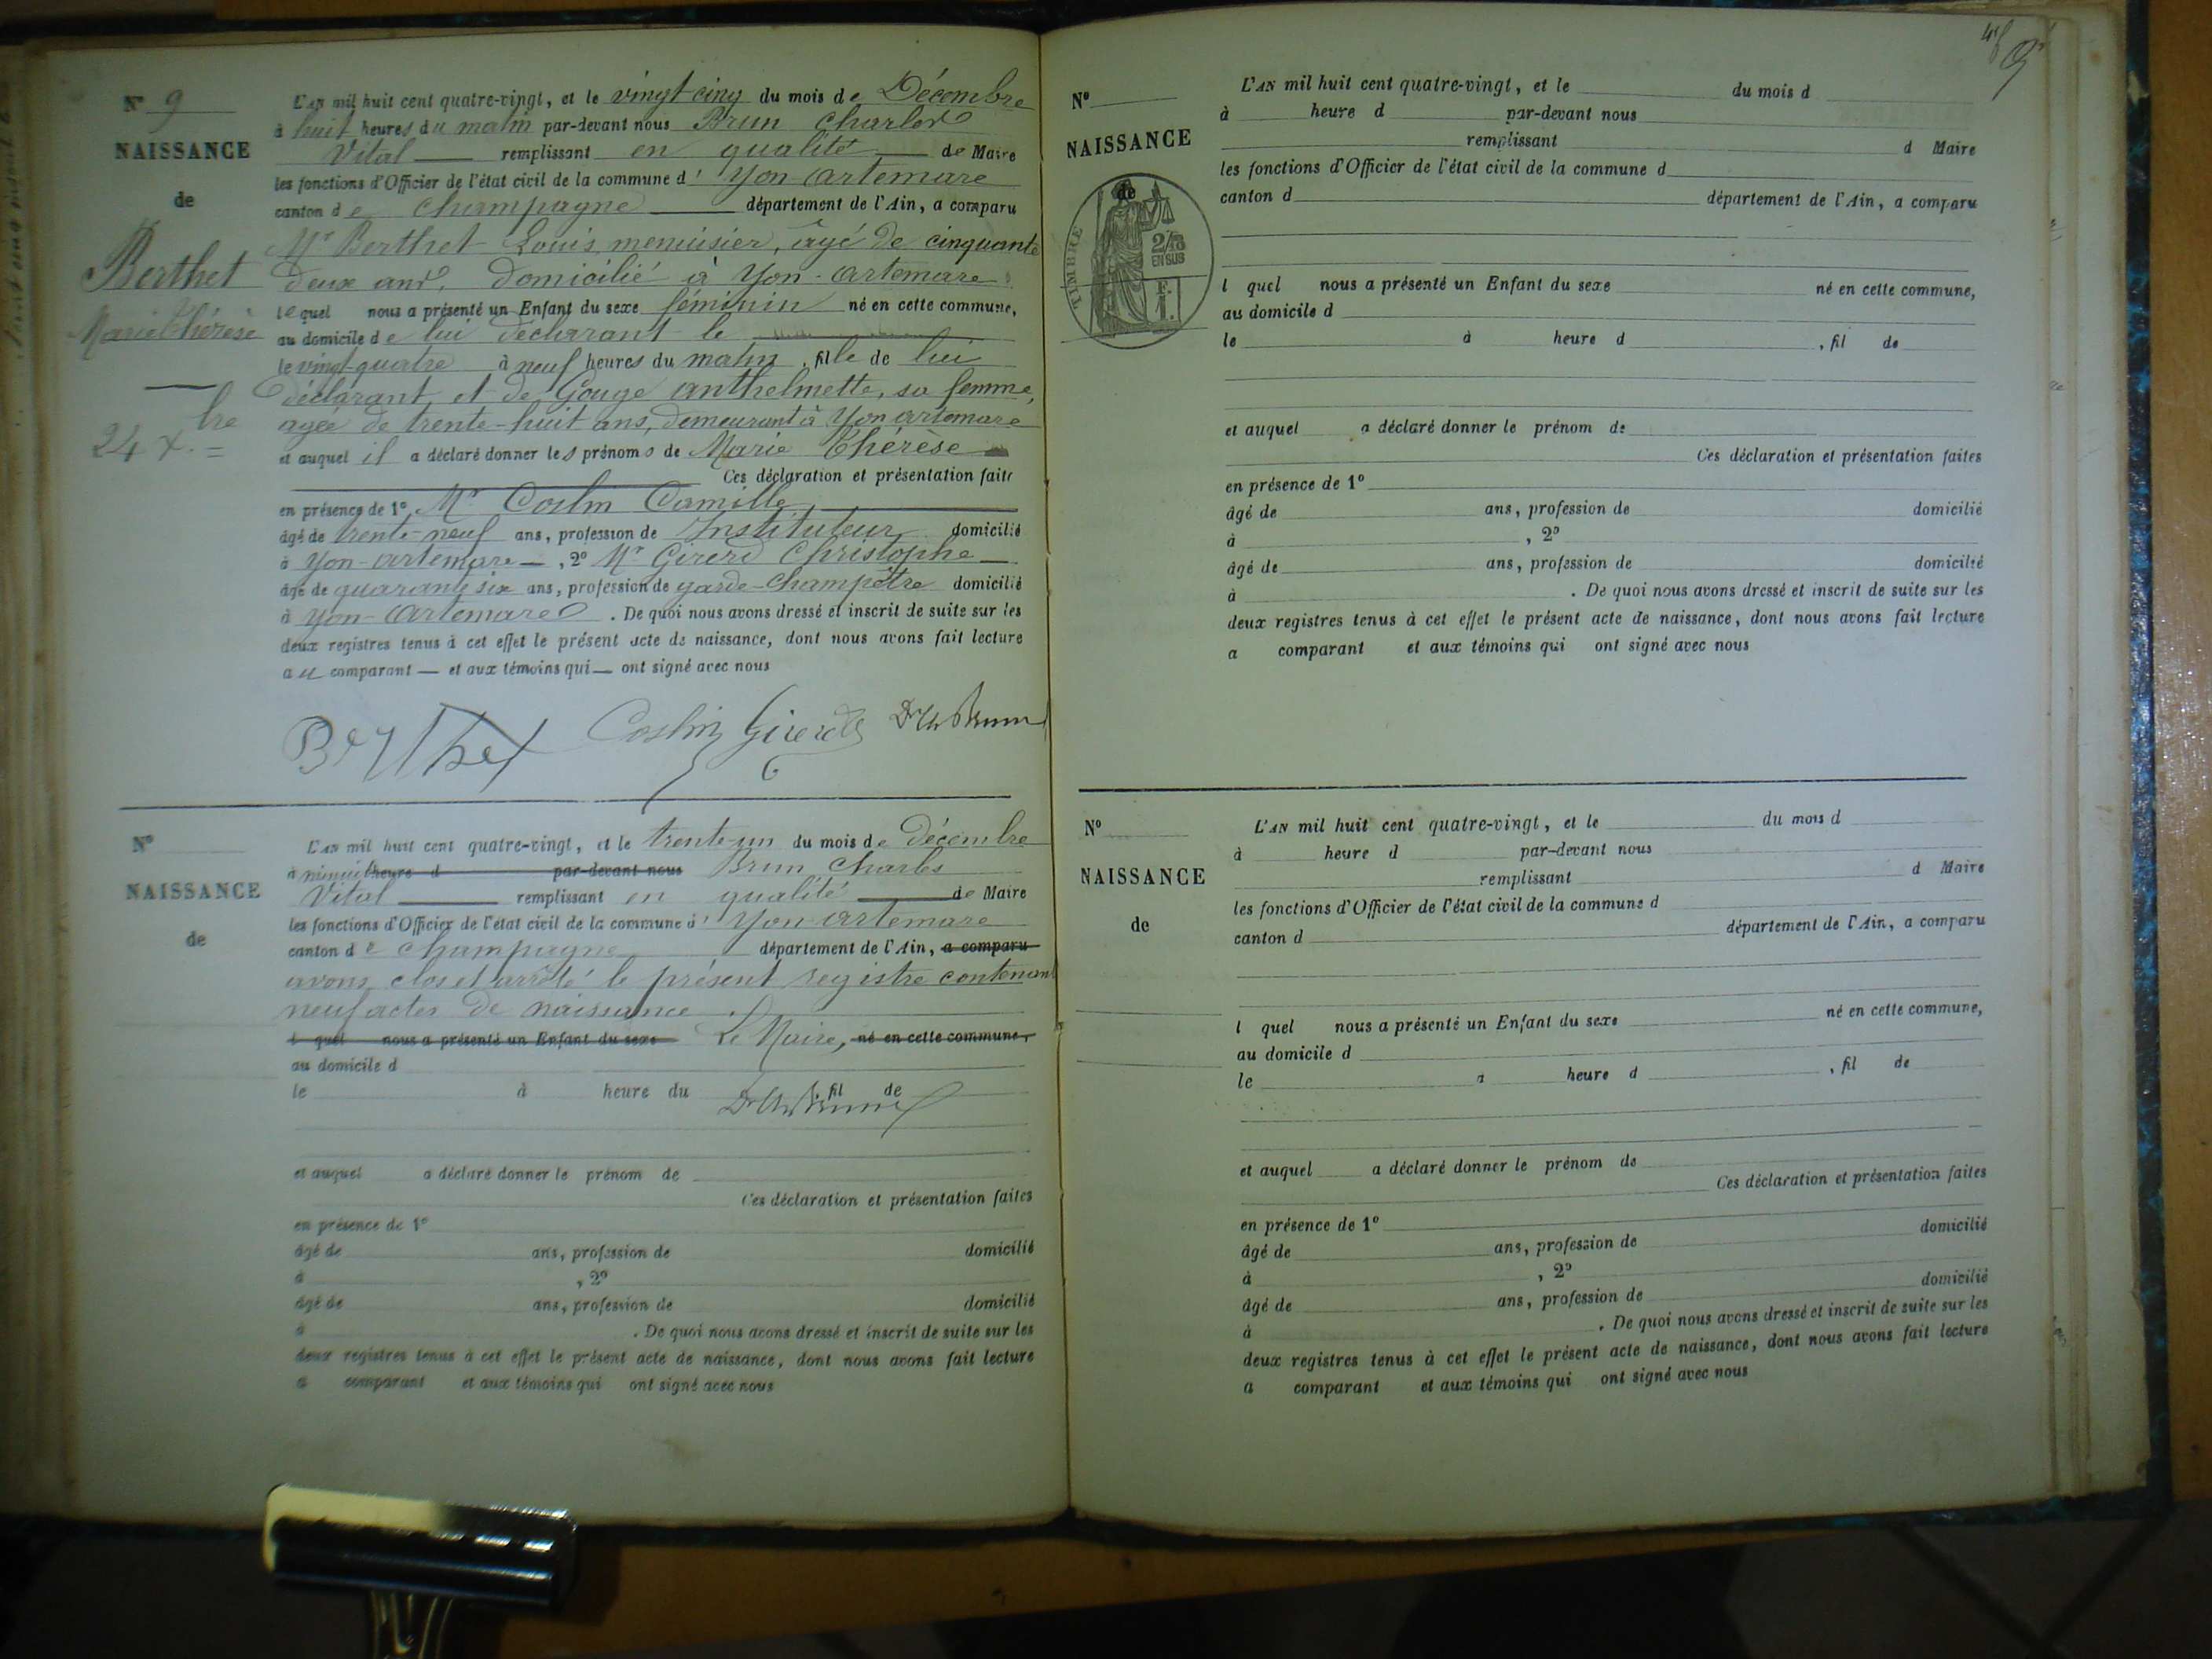 N° 9
NAISSANCE
de
Berthet
Marie Thérèse
24 Xbre
L'AN mil huit cent quatre-vingt, et le vingt cinq du mois de Décembre
à huit heures du matin par-devant nous Brun Charles
Vital remplissant en qualité de Maire
les fonctions d'Officier de l'état civil de la commune d' Yon-Artemare
canton de Champagne département de l'Ain, a comparu
Mr Berthet Louis, menuisier, âgé de cinquante
deux ans, domicilié à Yon-Artemare
lequel nous a présenté un Enfant du sexe féminin né en cette commune,
au domicile de lui déclarant le
le vingt-quatre à neuf heures du matin, fille de lui
déclarant et de Gouge Anthelmette, sa femme,
agée de trente-huit ans, demeurant à Yon artemare
et auquel il a déclaré donner les prénoms de Marie Thérèse
Ces déclaration et présentation faites
en présence de 1° Mr Coslin Camille
âgé de trente-neuf ans, profession de Instituteur domicilié
à Yon-artemare, 2° Mr Girerd Christophe
âgé de quarante six ans, profession de garde-Champêtre domicilié
à Yon-Artemare. De quoi nous avons dressé et inscrit de suite sur les
deux registres tenus à cet effet le présent acte de naissance, dont nous avons fait lecture
au comparant et aux témoins qui ont signé avec nous
Berthet Coslin Girerd Dr Ch Brun
N°
NAISSANCE
de
L'AN mil huit cent quatre-vingt, et le trente-un du mois de décembre
à minuit heure d par-devant nous Brun Charles
Vital remplissant en qualité de Maire
les fonctions d'Officier de l'état civil de la commune d' Yon-artemare
canton de Champagne département de l'Ain, a comparu
avons clos et arrêté le présent registre contenant
neuf actes de naissance.
l quel nous a présenté un Enfant du sexe Le Maire, né en cette commune,
au domicile d
le à heure du , fil de
Dr Ch Brun
et auquel a déclaré donner le prénom de
Ces déclaration et présentation faites
en présence de 1°
âgé de ans, profession de domicilié
à , 2°
âgé de ans, profession de domicilié
à . De quoi nous avons dressé et inscrit de suite sur les
deux registres tenus à cet effet le présent acte de naissance, dont nous avons fait lecture
a comparant et aux témoins qui ont signé avec nous
N°
NAISSANCE
de
TIMBRE
2/10
EN SUS
F.
1.
L'AN mil huit cent quatre-vingt, et le du mois d
à heure d par-devant nous
remplissant d Maire
les fonctions d'Officier de l'état civil de la commune d
canton d département de l'Ain, a comparu
l quel nous a présenté un Enfant du sexe né en cette commune,
au domicile d
le à heure d , fil de
et auquel a déclaré donner le prénom de
Ces déclaration et présentation faites
en présence de 1°
âgé de ans, profession de domicilié
à , 2°
âgé de ans, profession de domicilié
à . De quoi nous avons dressé et inscrit de suite sur les
deux registres tenus à cet effet le présent acte de naissance, dont nous avons fait lecture
a comparant et aux témoins qui ont signé avec nous
N°
NAISSANCE
de
L'AN mil huit cent quatre-vingt, et le du mois d
à heure d par-devant nous
remplissant d Maire
les fonctions d'Officier de l'état civil de la commune d
canton d département de l'Ain, a comparu
l quel nous a présenté un Enfant du sexe né en cette commune,
au domicile d
le à heure d , fil de
et auquel a déclaré donner le prénom de
Ces déclaration et présentation faites
en présence de 1°
âgé de ans, profession de domicilié
à , 2°
âgé de ans, profession de domicilié
à . De quoi nous avons dressé et inscrit de suite sur les
deux registres tenus à cet effet le présent acte de naissance, dont nous avons fait lecture
a comparant et aux témoins qui ont signé avec nous